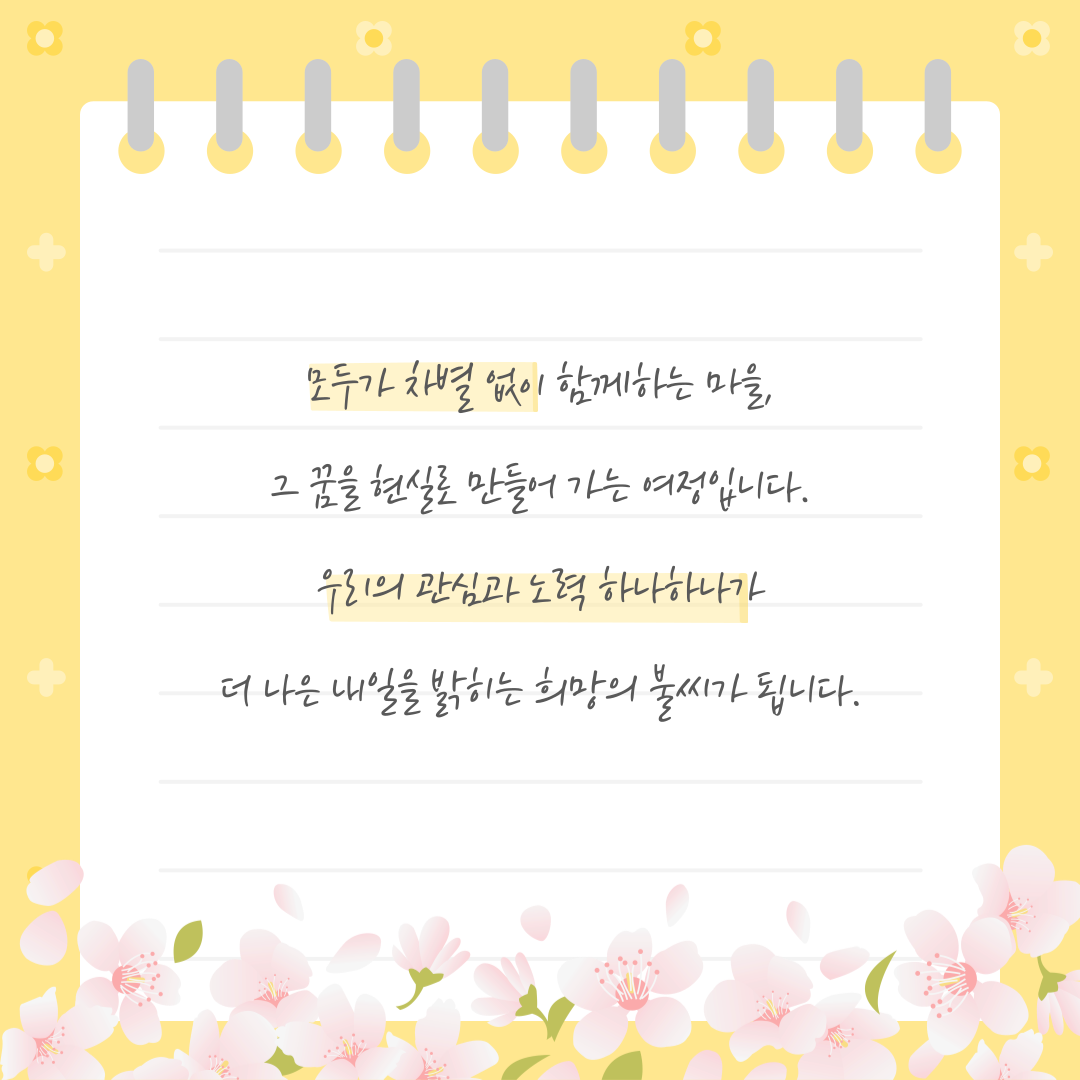 모두가 차별 없이 함께하는 마을,
그 꿈을 현실로 만들어 가는 여정입니다.
우리의 관심과 노력 하나하나가
더 나은 내일을 밝히는 희망의 불씨가 됩니다.